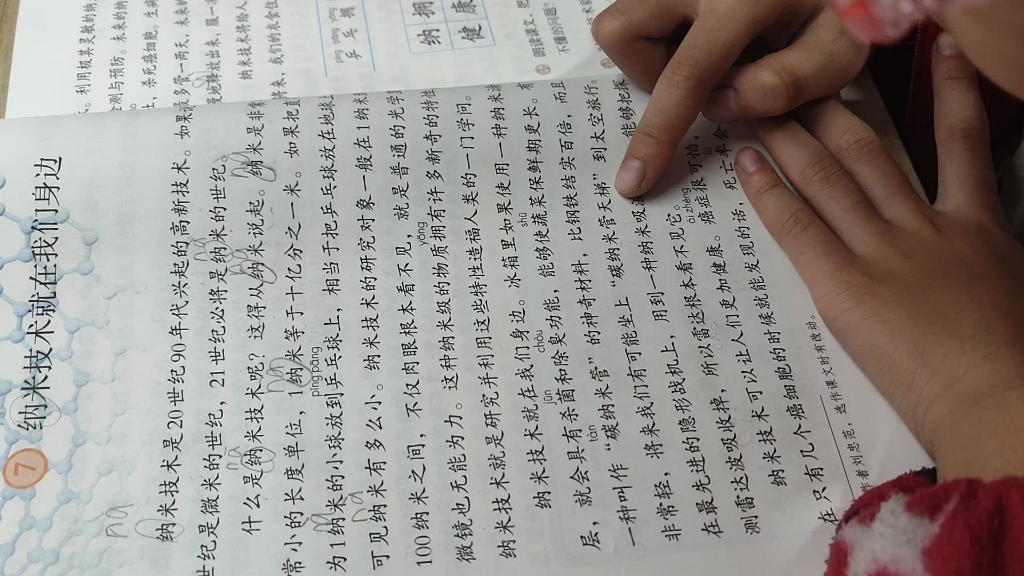 7
纳米技术就在我们身边
纳米技术是20世纪90年代兴起的高新技术。如果
世纪是微米的世纪，21世纪必将是纳米的世纪。
什么是纳米技术呢？这得从纳米说起。纳米是非
常小的长度单位，1纳米等于十亿分之一米。如果把直
pīng pāng
为1纳米的小球放到乒乓球上，相当于把乒乓球放在地球上
可见纳米有多么小。纳米技术的研究对象一般在1纳米
100纳米之间，不仅肉眼根本看不见，就是普通的光学
微镜也无能为力。这种纳米级的物质拥有许多新奇的特性
yōng
纳米技术就是研究并利用这些特性造福人类的一门学问。
纳米技术就在我们身边。冰箱里如果使用一种纳米涂
chòu
shū
层，就会具有杀菌和除臭功能，能够使蔬菜保鲜期更长。有
jūn
tàn
一种叫作“碳纳米管”的神奇材料，比钢铁结实百倍，而且
非常轻，将来我们有可能坐上“碳纳米管天梯”到太空旅行。
在最先进的隐形战机上，用到一种纳米吸
能够把探
测雷达波吸收掉，所以雷达根本看不见它。
ái zhèng
纳米技术可以让人们更加健康。癌症很可怕，
只有几个癌细胞的时候就能发现的话，死亡率会
作者刘忠范，选作课文时有改动。
纳
拥
健
康
pīng pāng
乒乓
利用极其灵敏的纳
测与预防。未来的纳
杀死癌细胞，生病
服一
纳米技术将给人
我们的衣食住
朗读课文，把
不懂的问题
na